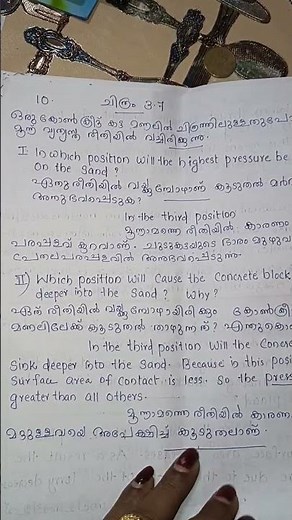 10. ചിത്രം 3.7
ഒരു കോൺക്രീറ്റ് കട്ട മണലിൽ ചിത്രത്തിലുള്ളതുപോ
മൂന്ന് വ്യത്യസ്ത രീതിയിൽ വച്ചിരിക്കുന്നു.
I In which position will the highest pressure be
on the sand?
ഏതു രീതിയിൽ വച്ചപ്പോഴാണ് കൂടുതൽ മർദ
അനുഭവപ്പെടുക?
In the third position
മൂന്നാമത്തെ രീതിയിൽ. കാരണം
പരപ്പളവ് കുറവാണ്. ഭാരം മുഴുവ
പരപ്പളവിൽ അനുഭവപ്പെടുന്നു.
II) Which position will cause the concrete block
deeper into the sand? Why?
ഏത് രീതിയിൽ വച്ചപ്പോഴായിരിക്കും കോൺക്രീ
മണലിലേക്ക് കൂടുതൽ താഴുന്നത്? എന്തുകൊ
In the third position will the Concre
sink deeper into the sand. Because in this posi
surface area of contact is less. So the press
greater than all others.
മൂന്നാമത്തെ രീതിയിൽ കാരണം
മറ്റുള്ളവയെ അപേക്ഷിച്ച് കൂടുതലാണ്.